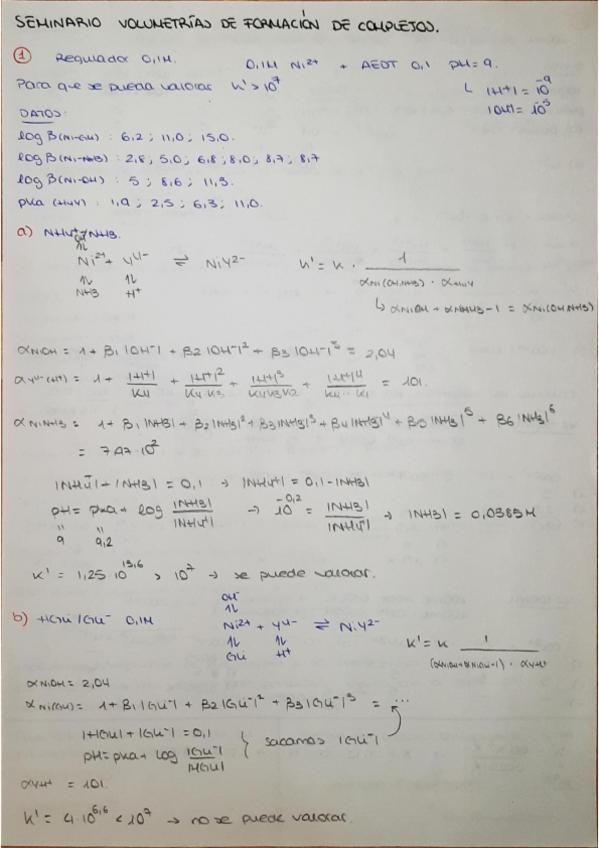 SEMINARIO VOLUMETRÍAS DE FORMACIÓN DE COMPLEJOS.
① Regulador 0,1M. 0,1M Ni²⁺ + AEDT 0,1 pH=9.
Para que se pueda valorar K' > 10⁷ ↳ |H+| = 10⁻⁹
|OH-| = 10⁻⁵
DATOS:
log β (Ni-Gli) : 6,2 ; 11,0 ; 15,0.
log β (Ni-NH3) : 2,8 ; 5,0 ; 6,8 ; 8,0 ; 8,7 ; 8,7
log β (Ni-OH) : 5 ; 8,6 ; 11,3.
pKa (H4Y) : 1,9 ; 2,5 ; 6,3 ; 11,0.
a) NH4⁺/NH3.
OH⁻
⇅
Ni²⁺ + Y⁴⁻ ⇌ NiY²⁻ K' = K · 1 / αNi(OH,NH3) · αH4Y
⇅ ⇅
NH3 H⁺ ↳ αNiOH + αNiNH3 - 1 = αNi(OH,NH3)
αNiOH = 1 + β1 |OH⁻| + β2 |OH⁻|² + β3 |OH⁻|³ = 2,04
αY⁴⁻(H+) = 1 + |H+|/K4 + |H+|²/K4K3 + |H+|³/K4K3K2 + |H+|⁴/K4...K1 = 101.
αNiNH3 = 1 + β1 |NH3| + β2 |NH3|² + β3 |NH3|³ + β4 |NH3|⁴ + β5 |NH3|⁵ + β6 |NH3|⁶
= 7,17·10²
|NH4⁺| + |NH3| = 0,1 → |NH4⁺| = 0,1 - |NH3|
pH = pKa + log |NH3|/|NH4⁺| → 10⁻⁰,² = |NH3|/|NH4⁺| → |NH3| = 0,0389M
" "
9 9,2
K' = 1,25 10¹³,⁶ > 10⁷ → se puede valorar.
b) HGli/Gli⁻ 0,1M
OH⁻
⇅
Ni²⁺ + Y⁴⁻ ⇌ NiY²⁻
⇅ ⇅ K' = K 1 / (αNiOH+αNiGli-1) · αY⁴⁻
Gli H⁺
αNiOH = 2,04
αNi(Gli) = 1 + β1 |Gli⁻| + β2 |Gli⁻|² + β3 |Gli⁻|³ = ...
|HGli| + |Gli⁻| = 0,1
pH = pKa + log |Gli⁻|/|HGli| } sacamos |Gli⁻|
αY⁴⁻ = 101.
K' = 4·10⁶,⁶ < 10⁷ → no se puede valorar.